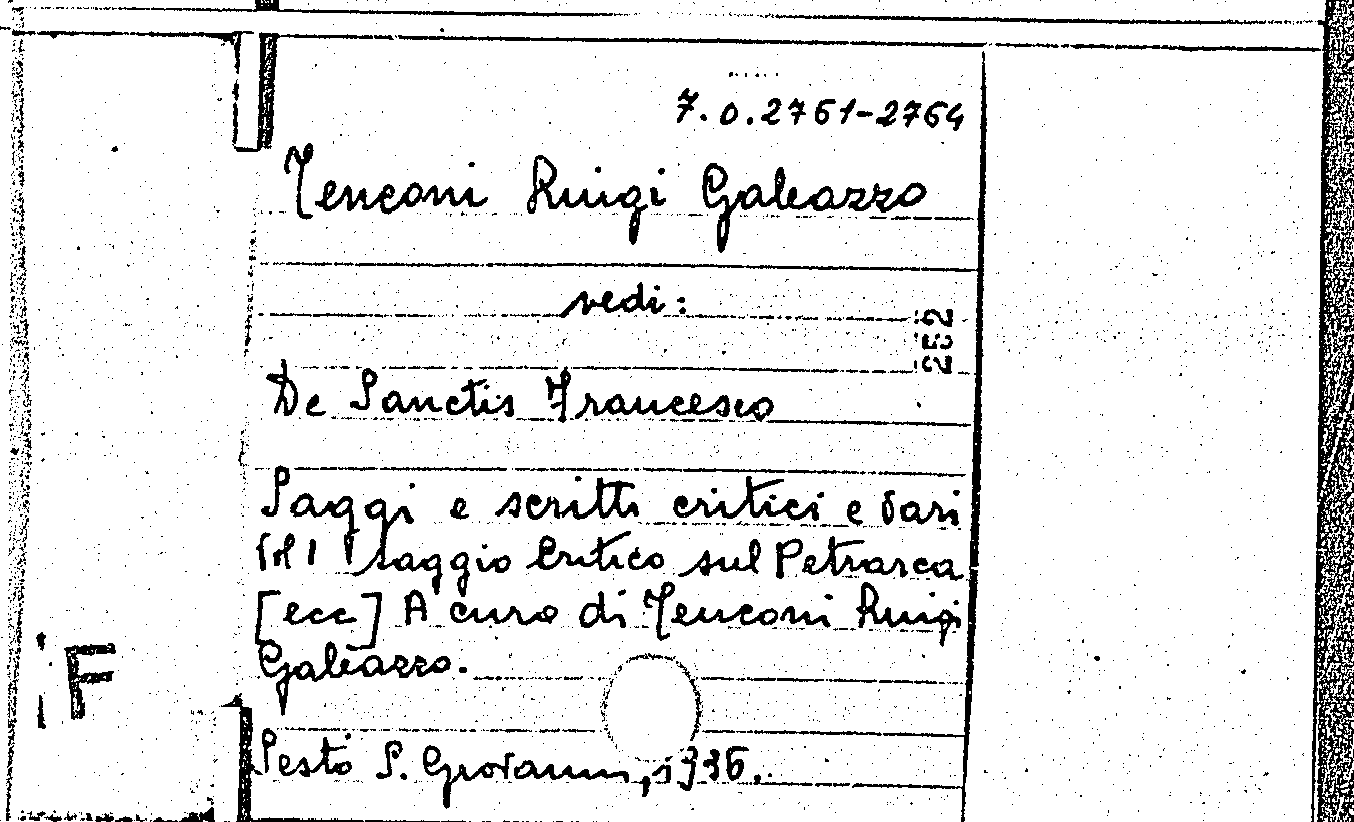 7.0.2761-2764
Tenconi Luigi Galeazzo
vedi:
252
De Sanctis Francesco
Saggi e scritti critici e vari
Vol 1 saggio critico sul Petrarca
[ecc] A cura di Tenconi Luigi
Galeazzo.
F
Sesto S. Giovanni, 1936.